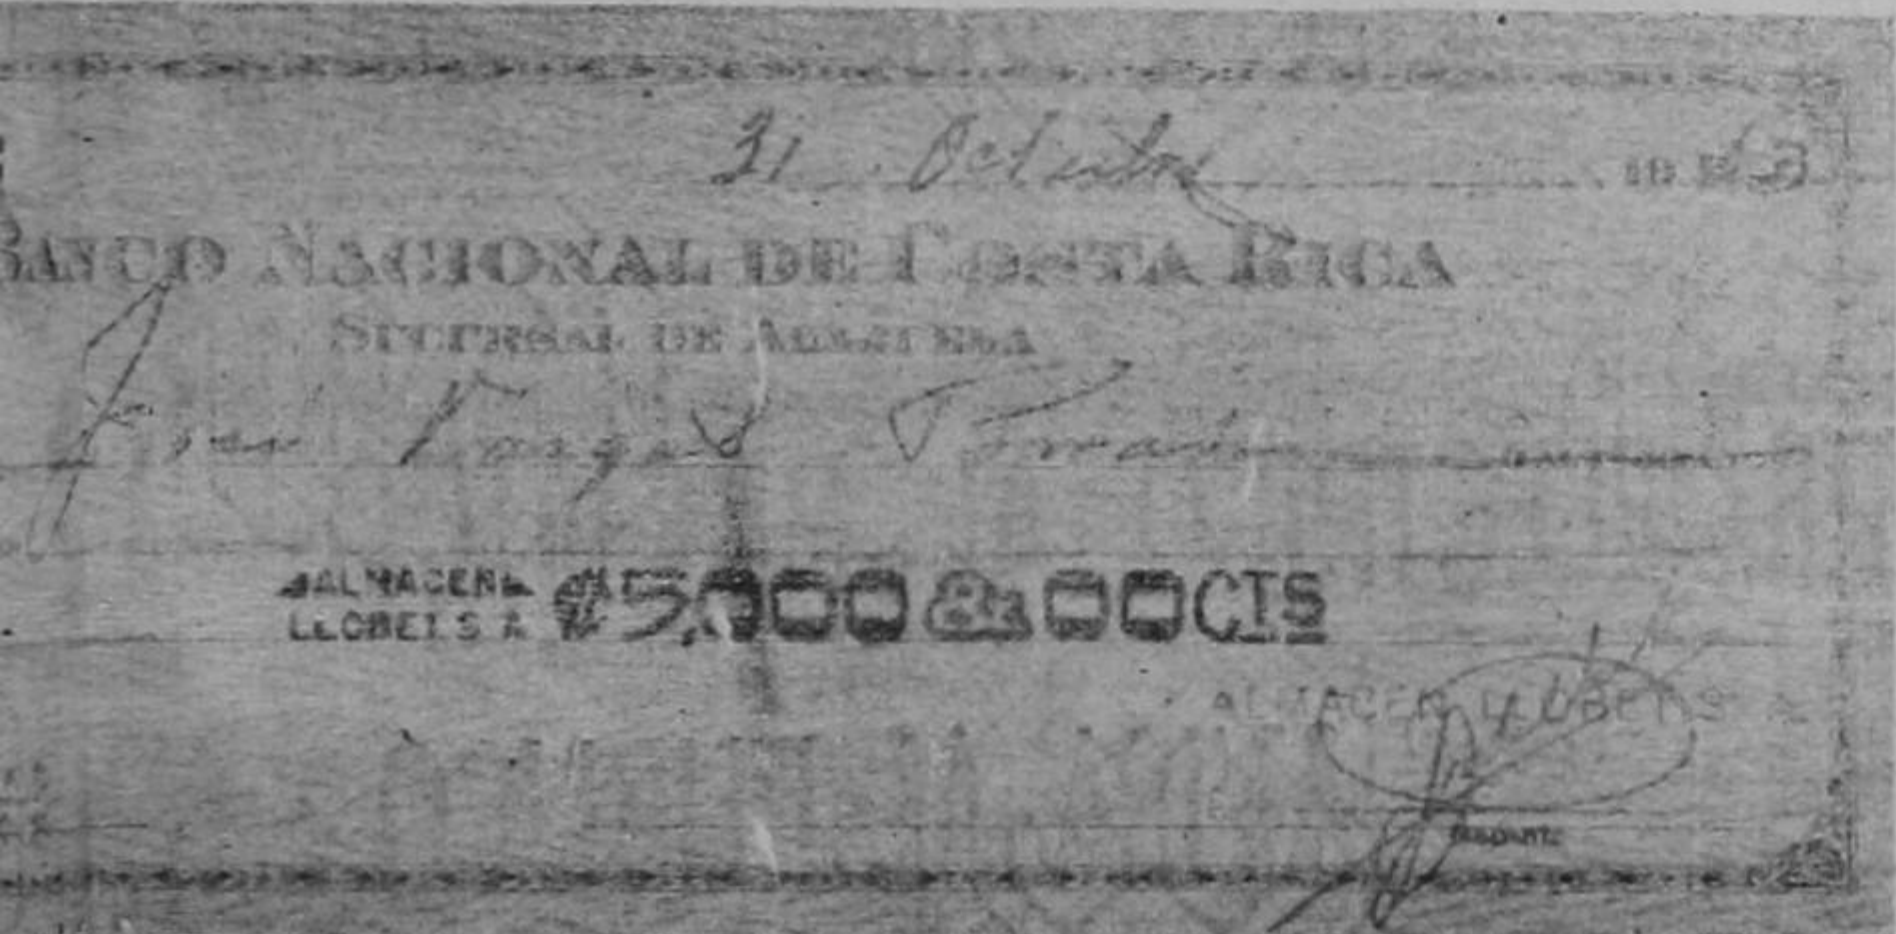 31 Octubre 1963
BANCO NACIONAL DE COSTA RICA
SUCURSAL DE ALAJUELA
Juan Vargas
ALMACEN
LLOBET S A ₡ 5,000 & 00 CTS
ALMACEN LLOBET S A